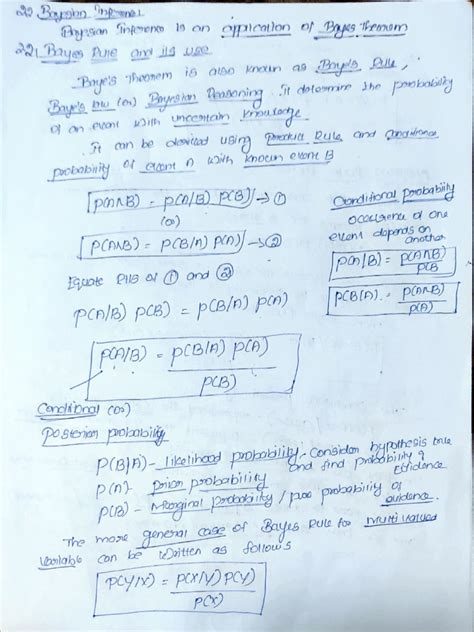 2.2 Bayesian Inference
Bayesian Inference is an application of Bayes Theorem
2.2.1 Bayes Rule and its use
Baye's Theorem is also known as Baye's Rule,
Baye's law (or) Bayesian Reasoning. It determine the probability
of an event with uncertain knowledge.
It can be derived using Product Rule and conditional
probability of event A with known event B
P(A∧B) = P(A/B) P(B) → ①
(or)
P(A∧B) = P(B/A) P(A) → ②
Equate RHS of ① and ②
P(A/B) P(B) = P(B/A) P(A)
P(A/B) = P(B/A) P(A)
P(B)
Conditional probability
occurrence of one
event depends on
another
P(A/B) = P(A∧B)
P(B
P(B/A) = P(A∧B)
P(A)
Conditional (or)
Posterior probability
P(B|A) - Likelihood probability - Consider hypothesis true
and find probability of Evidence
P(A) - Prior probability
P(B) - Marginal probability / pure probability of
evidence.
The more general case of Bayes Rule for Multivalued
variable can be written as follows
P(Y/X) = P(X/Y) P(Y)
P(X)